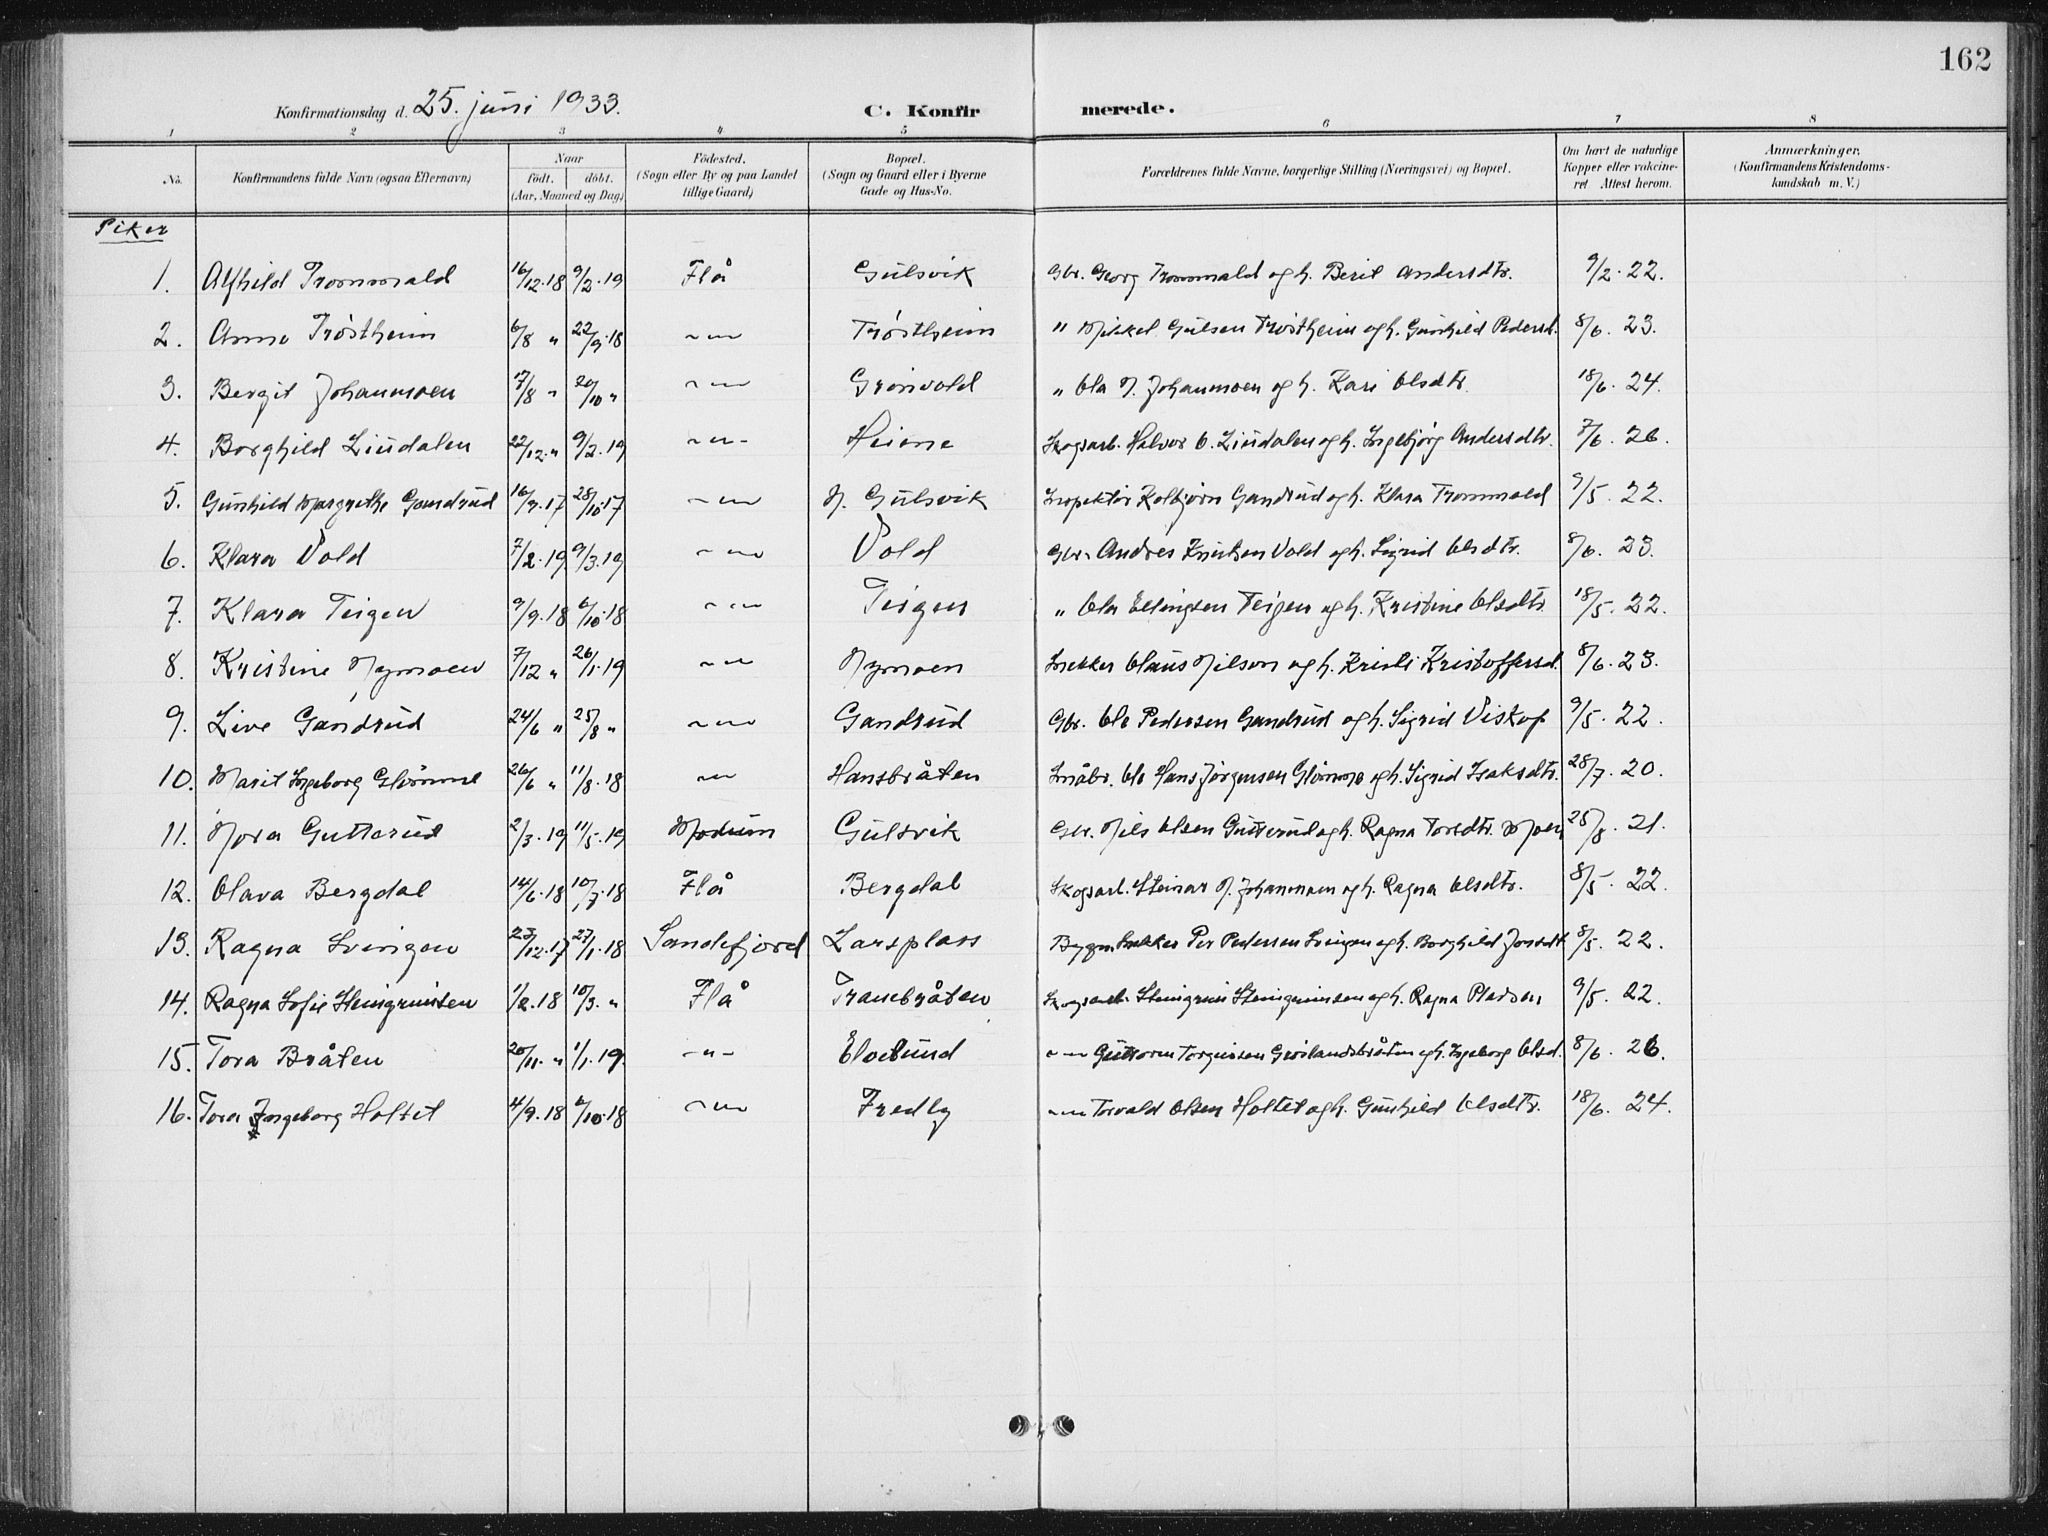 162
Konfirmationsdag d. 25. juni 1933. C. Konfirmerede.
1 2 3 4 5 6 7 8
No. Konfirmandens fulde Navn (ogsaa Efternavn) Naar født. døbt. (Aar, Maaned og Dag) Fødested. (Sogn eller By og paa Landet tillige Gaard) Bopæl. (Sogn og Gaard eller i Byerne Gade og Hus-No. Forældrenes fulde Navne, borgerlige Stilling (Næringsvei) og Bopæl. Om havt de naturlige Kopper eller vakcineret Attest herom. Anmærkninger, (Konfirmandens Kristendomskundskab m. V.)
Piker
1. Alfhild Trommald 16/12.18 9/2.19 Flå Gulsvik Gbr. Georg Trommald og h. Berit Andersdtr. 9/2.22.
2. Anne Trøstheim 6/8 " 22/9.18 -"- Trøstheim " Mikkel Gulsen Trøstheim og h. Gunhild Pedersd. 8/6.23.
3. Bergit Johannmoen 17/8 " 20/10 " -"- Grønvold " Ola N. Johannmoen og h. Kari Olsdtr. 18/6.24.
4. Borghild Liudalen 22/12." 9/2.19 -"- Heiene Skogsarb. Halvor O. Liudalen og h. Ingebjørg Andersdtr. 7/6.26.
5. Gunhild Margrethe Gandrud 16/9.17 28/10.17 -"- N. Gulsvik Inspektør Kolbjørn Gandrud og h. Klara Trommald 9/5.22.
6. Klara Vold 7/2.19 9/3.19 -"- Vold Gbr. Andres Knutsen Vold og h. Sigrid Olsdtr. 8/6.23.
7. Klara Teigen 9/9.18 6/10.18 -"- Teigen " Ola Ellingsen Teigen og h. Kristine Olsdtr. 18/5.22.
8. Kristine Nymoen 7/12 " 26/1.19 -"- Nymoen Snekker Olaus Nilson og h. Kristi Kristoffersd. 8/6.23.
9. Live Gandrud 24/6 " 25/8 " -"- Gandrud Gbr. Ole Pedersen Gandrud og h. Sigrid Viskop 9/5.22.
10. Marit Ingeborg Glømme 26/6 " 11/8.18 -"- Hansbråten Småbr. Ole Hans Jørgensen Glømme og h. Sigrid Isaksdtr. 28/7.20.
11. Nora Gutterud 2/3.19 11/5.19 Modum Gulsvik Gbr. Nils Olsen Gutterud og h. Ragna Toredtr. Moen 25/8.21.
12. Olava Bergdal 14/6.18 10/7.18 Flå Bergdal Skogsarb. Steinar N. Johannmoen og h. Ragna Olsdtr. 8/5.22.
13. Ragna Svingen 23/12.17 27/1.18 Sandefjord Larsplass Bygn.snekker Per Pedersen Svingen og h. Borghild Jonsdt. 8/5.22.
14. Ragna Sofie Steingrimsen 1/2.18 10/3." Flå Tranebråten Skogsarb. Steingrim Steingrimsen og h. Ragna Pladsen 9/5.22.
15. Tora Bråten 20/11." 1/1.19. -"- Elvesund -"- Guttorm Torgiersen Grøslandsbråten og h. Ingeborg Olsd. 8/6.26.
16. Tora Ingeborg Holtet 4/9.18 6/10.18 -"- Fredly -"- Torvald Olsen Holtet og h. Gunhild Olsdtr. 18/6.24.